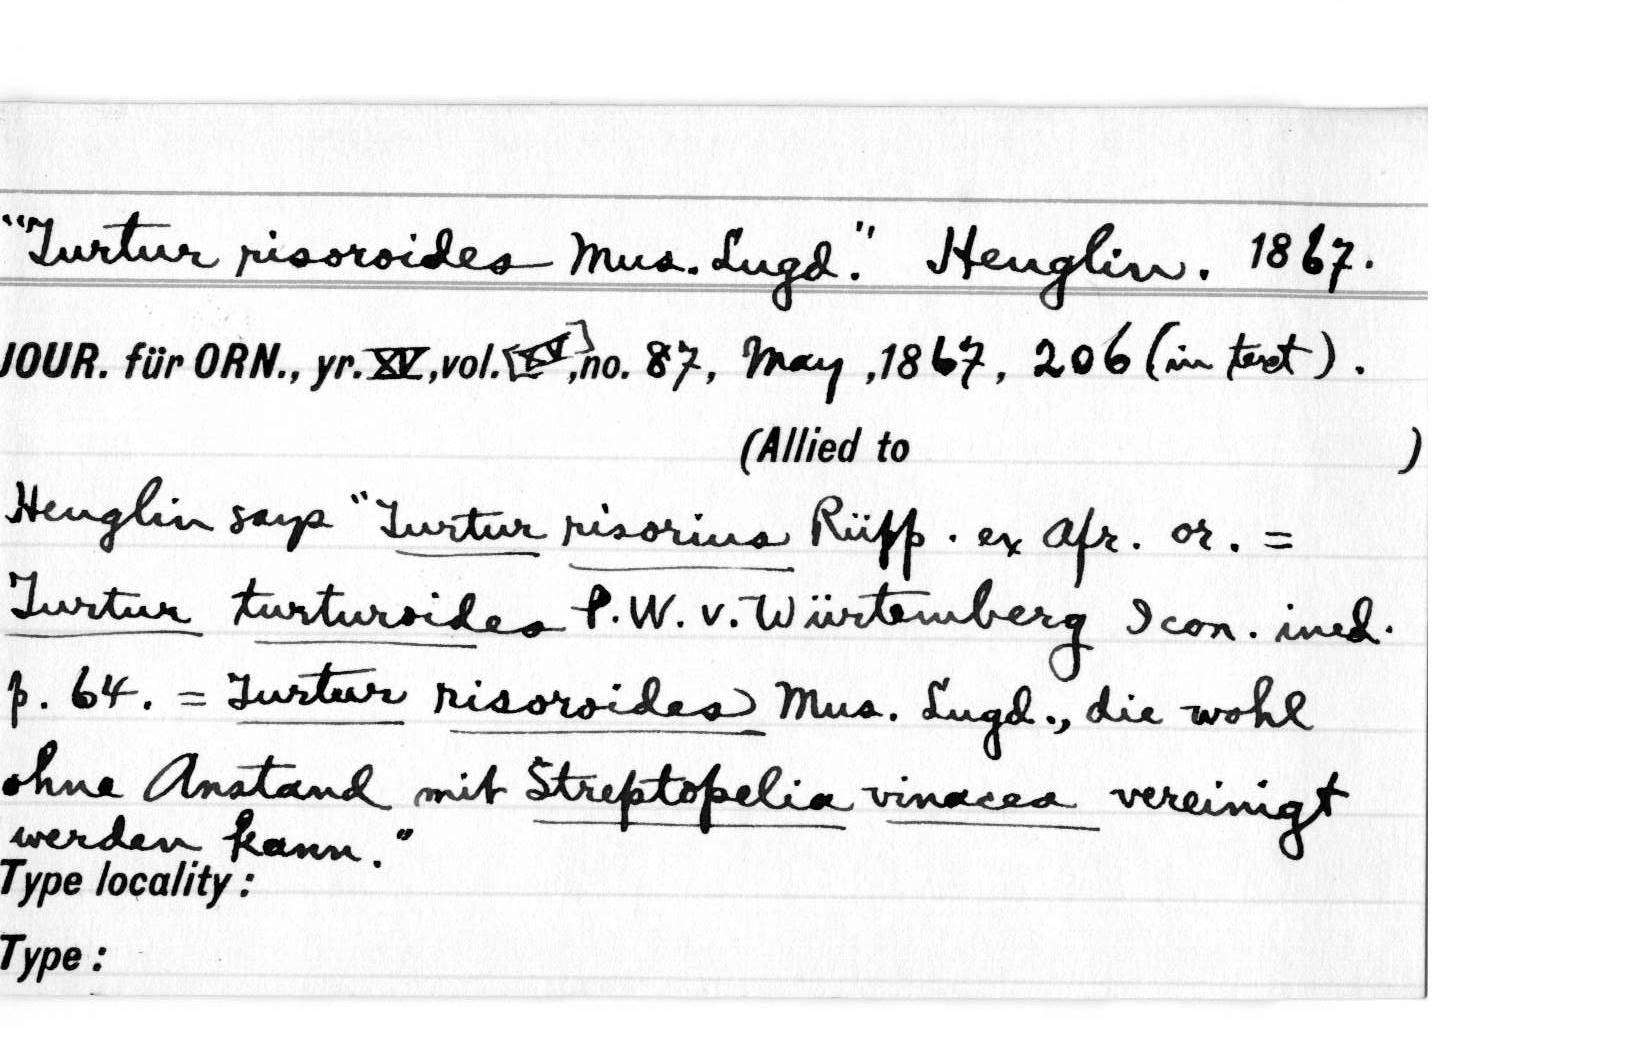 "Turtur risoroides Mus. Lugd." Heuglin. 1867.
JOUR. für ORN., yr. XV, vol. [XV], no. 87, May, 1867, 206 (in text).
(Allied to )
Heuglin says "Turtur risorius Rüpp. ex Afr. or. =
Turtur turturoides P. W. v. Würtemberg Icon. ined.
p. 64. = Turtur risoroides Mus. Lugd., die wohl
ohne Anstand mit Streptopelia vinacea vereinigt
werden kann."
Type locality:
Type: